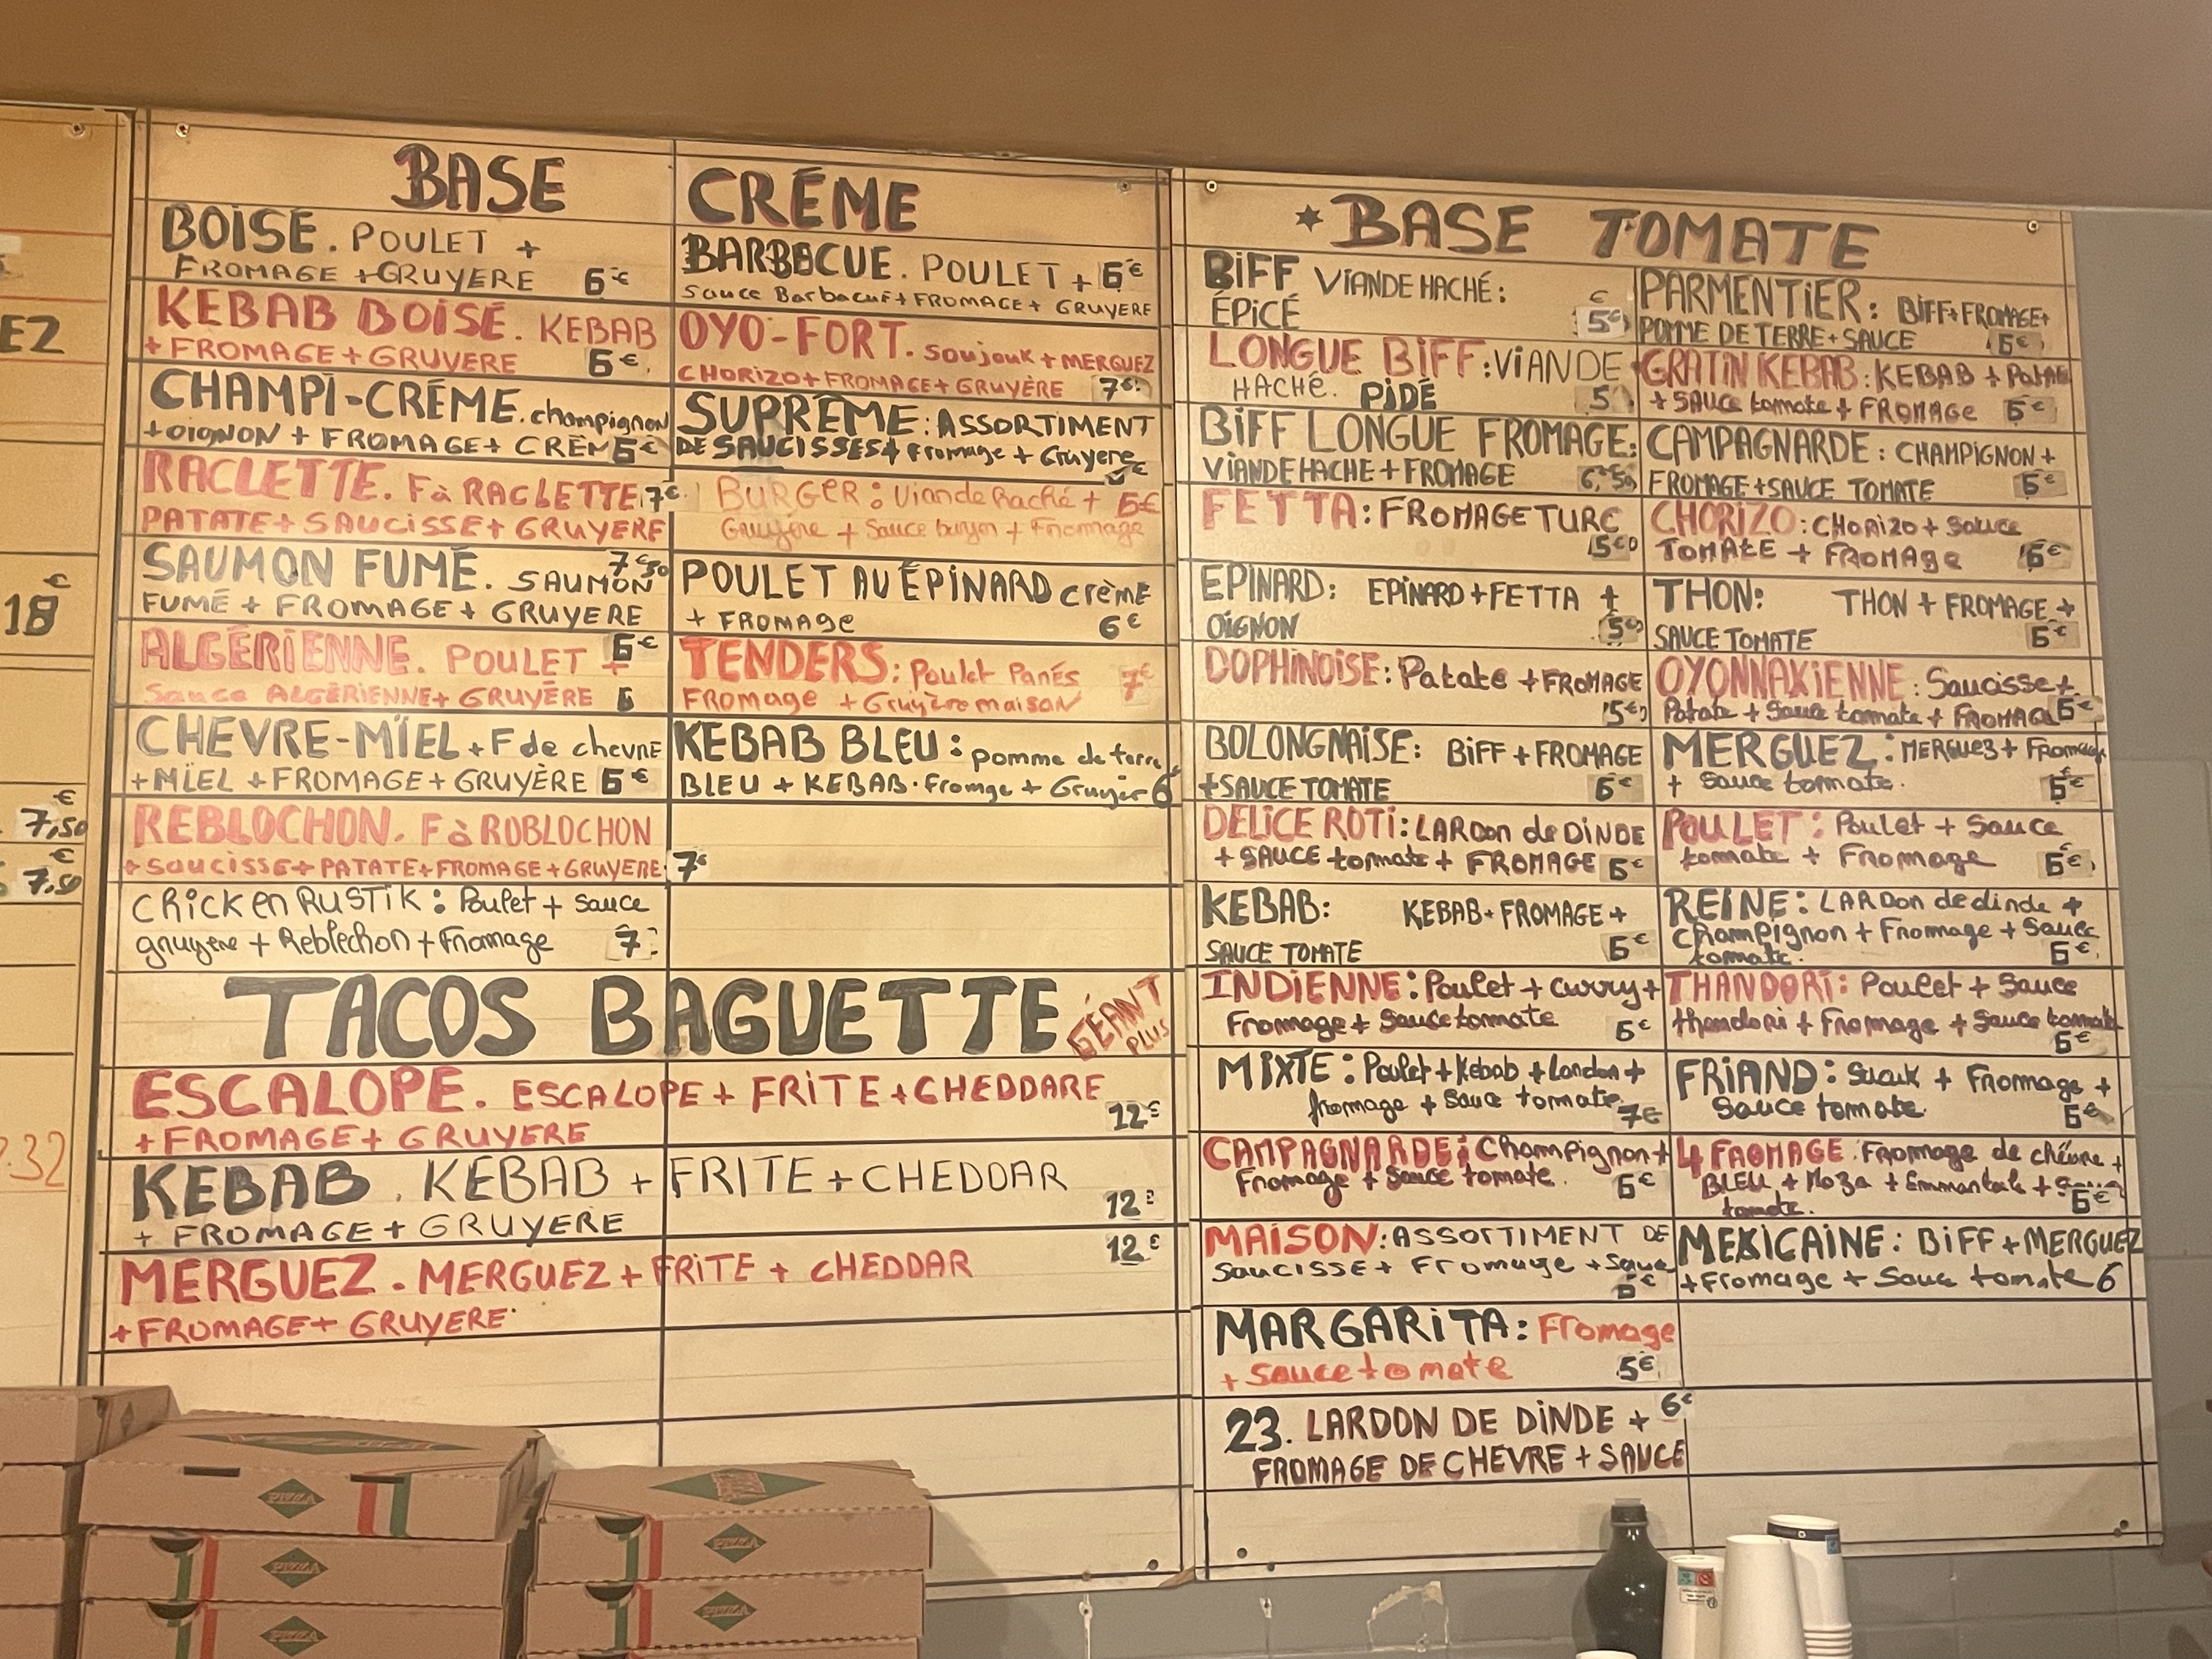 EZ
€
18
€
7,50
€
7,50
.32
BASE CRÉME
BOISÉ. POULET +
FROMAGE + GRUYERE 6€
KEBAB BOISÉ. KEBAB
+ FROMAGE + GRUYERE 6€
CHAMPI-CRÉME. champignon
+ OIGNON + FROMAGE + CRÈM 6€
RACLETTE. F à RACLETTE 7€
PATATE + SAUCISSE + GRUYERE
SAUMON FUMÉ. SAUMON 7€50
FUMÉ + FROMAGE + GRUYERE
ALGÉRIENNE. POULET + 6€
Sauce ALGÉRIENNE + GRUYÉRE 6
CHEVRE-MIEL + F de chevre
+ MIEL + FROMAGE + GRUYÈRE 6€
REBLOCHON. F à ROBLOCHON
+ saucisse + PATATE + FROMAGE + GRUYERE 7€
CHICKEN RUSTIK : Poulet + sauce
gruyere + Reblechon + Fromage 7
BARBECUE. POULET + 6€
Sauce Barbacue + FROMAGE + GRUYERE
OYO-FORT. Soujouk + MERGUEZ
CHORIZO + FROMAGE + GRUYÈRE 7€
SUPRÊME : ASSORTIMENT
DE SAUCISSES + Fromage + Gruyere
BURGER : Viande haché + 6€
Gruyère + Sauce burger + Fromage
POULET AU ÉPINARD crème
+ FROMAGE 6€
TENDERS : Poulet Panés 7€
FROMAGE + Gruyère maison
KEBAB BLEU : pomme de terre
BLEU + KEBAB. Fromge + Gruyer 6
TACOS BAGUETTE GÉANT
PLUS
ESCALOPE. ESCALOPE + FRITE + CHEDDARE
+ FROMAGE + GRUYERE 12€
KEBAB. KEBAB + FRITE + CHEDDAR
+ FROMAGE + GRUYERE 12€
MERGUEZ. MERGUEZ + FRITE + CHEDDAR 12€
+ FROMAGE + GRUYERE
* BASE TOMATE
BIFF VIANDE HACHÉ :
ÉPICÉ 5€
LONGUE BIFF : VIANDE
HACHÉ. PIDÉ 5
BIFF LONGUE FROMAGE :
VIANDE HACHE + FROMAGE 6,50
FETTA : FROMAGE TURC
5€
EPINARD : EPINARD + FETTA +
OIGNON 5€
DOPHINOISE : Patate + FROMAGE
5€
BOLONGNAISE : BIFF + FROMAGE
+ SAUCE TOMATE 6€
DELICE ROTI : LARDON de DINDE
+ SAUCE tormate + FROMAGE 6€
KEBAB : KEBAB + FROMAGE +
SAUCE TOMATE 6€
INDIENNE : Poulet + curry +
Fromage + Sauce tomate 6€
MIXTE : Poulet + Kebab + Lardon +
fromage + Sauce tomate 7€
CAMPAGNARDE : Champignon +
Fromage + Sauce tomate. 6€
MAISON : ASSORTIMENT DE
SAUCISSE + Fromage + Sauce
6€
MARGARITA : Fromage
+ sauce tomate 5€
23. LARDON DE DINDE + 6€
FROMAGE DE CHEVRE + SAUCE
PARMENTIER : BIFF + FROMAGE +
POMME DE TERRE + SAUCE 6€
GRATIN KEBAB : KEBAB + Patate
+ SAUCE tomate + FROMAGE 6€
CAMPAGNARDE : CHAMPIGNON +
FROMAGE + SAUCE TOMATE 6€
CHORIZO : CHORIZO + Sauce
TOMATE + FROMAGE 6€
THON : THON + FROMAGE +
SAUCE TOMATE 6€
OYONNAXIENNE : Saucisse +
Patate + Sauce tomate + FROMAGE 6€
MERGUEZ : MERGUEZ + Fromage
+ Sauce tomate. 6€
POULET : Poulet + Sauce
tomate + Fromage 6€
REINE : LARDON de dinde +
Champignon + Fromage + Sauce
tomate. 6€
THANDORI : Poulet + Sauce
thandori + Fromage + Sauce tomate
6€
FRIAND : Suauk + Fromage +
Sauce tomate. 6€
4 FROMAGE. Fromage de chévre +
BLEU + Moza + Emmantale +
tomate. 6€
MEXICAINE : BIFF + MERGUEZ
+ Fromage + Sauce tomate 6
PIZZA
PIZZA
PIZZA
PIZZA
PIZZA